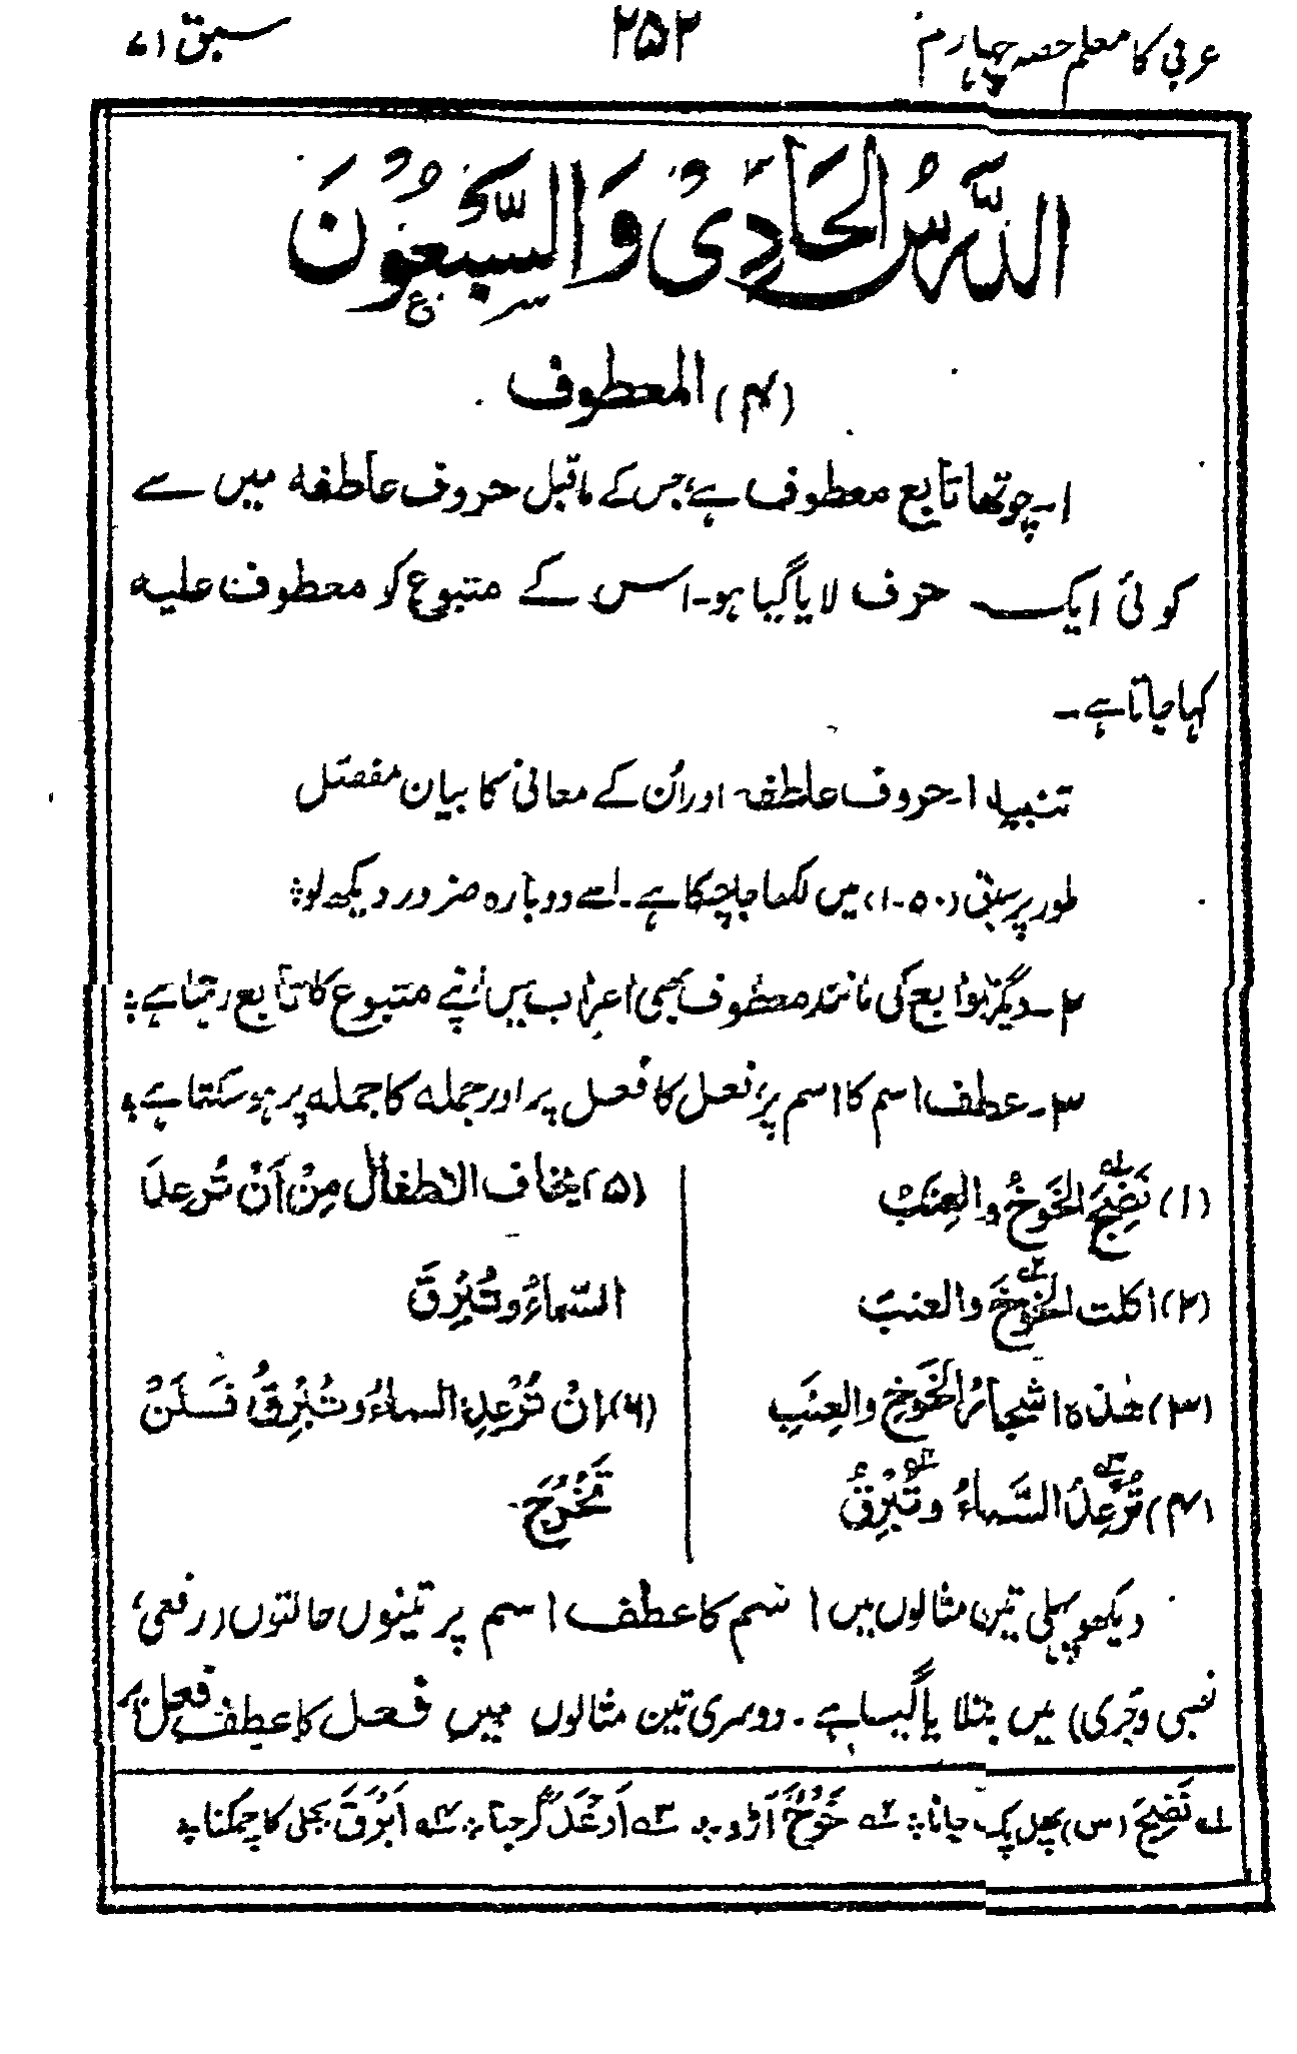 عربی کا معلم حصہ چہارم ۲۵۲ سبق ۷۱
الدَّرْسُ الحَادِیْ وَالسَّبْعُوْنَ
(۴) المعطوف
۱۔ چوتھا تابع معطوف ہے، جس کے ماقبل حروف عاطفہ میں سے
کوئی ایک حرف لایا گیا ہو۔ اس کے متبوع کو معطوف علیہ
کہا جاتا ہے۔
تنبیہ ۱۔ حروف عاطفہ اور اُن کے معانی کا بیان مفصّل
طور پر سبق (۵۰-۱) میں لکھا جا چکا ہے۔ اسے دوبارہ ضرور دیکھ لو؛
۲۔ دیگر توابع کی مانند معطوف بھی اعراب میں اپنے متبوع کا تابع رہتا ہے؛
۳۔ عطف اسم کا اسم پر، فعل کا فعل پر اور جملہ کا جملہ پر ہو سکتا ہے؛
(۱) نَضِجَ لہ الخَوخُ والعِنَبُ
(۲) اکلت الخَوْخَ ۲ہ والعنبَ
(۳) ھٰذہ اشجارُ الخَوْخِ والعِنَبِ
(۴) تُرْعِدُ ۳ہ السَّماءُ وتُبْرِقُ ۴ہ
(۵) یخاف الاطفالُ مِنْ اَنْ تُرعِدَ
السَّماءُ وتُبْرِقَ
(۶) اِنْ تُرْعِدِ السماءُ وتُبْرِقْ فَلَنْ
تَخْرُجَ
دیکھو پہلی تین مثالوں میں اسم کا عطف اسم پر تینوں حالتوں (رفعی،
نصبی وجرّی) میں بتلایا گیا ہے۔ دوسری تین مثالوں میں فعل کا عطف فعل پر
لہ نَضِجَ (س) پھل پک جانا؛ ۲ہ خَوْخٌ آڑو؛ ۳ہ اَرْعَدَ گرجنا؛ ۴ہ اَبْرَقَ بجلی کا چمکنا؛